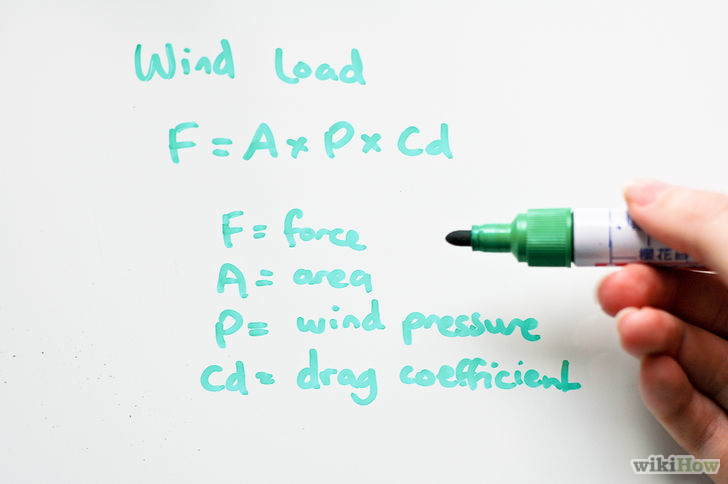 Wind Load
F = A x P x Cd
F = force
A = area
P = wind pressure
Cd = drag coefficient
wikiHow